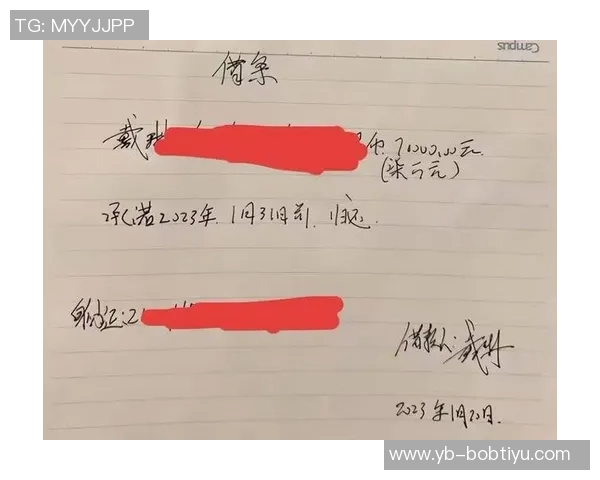 TG: MYYJJPP
Campus
借条
戴琳 币 7000.00元
(柒仟元)
承诺2023年1月31日前归还.
身份证:2
借款人:戴琳
2023年1月20日.
www.yb-bobtiyu.com